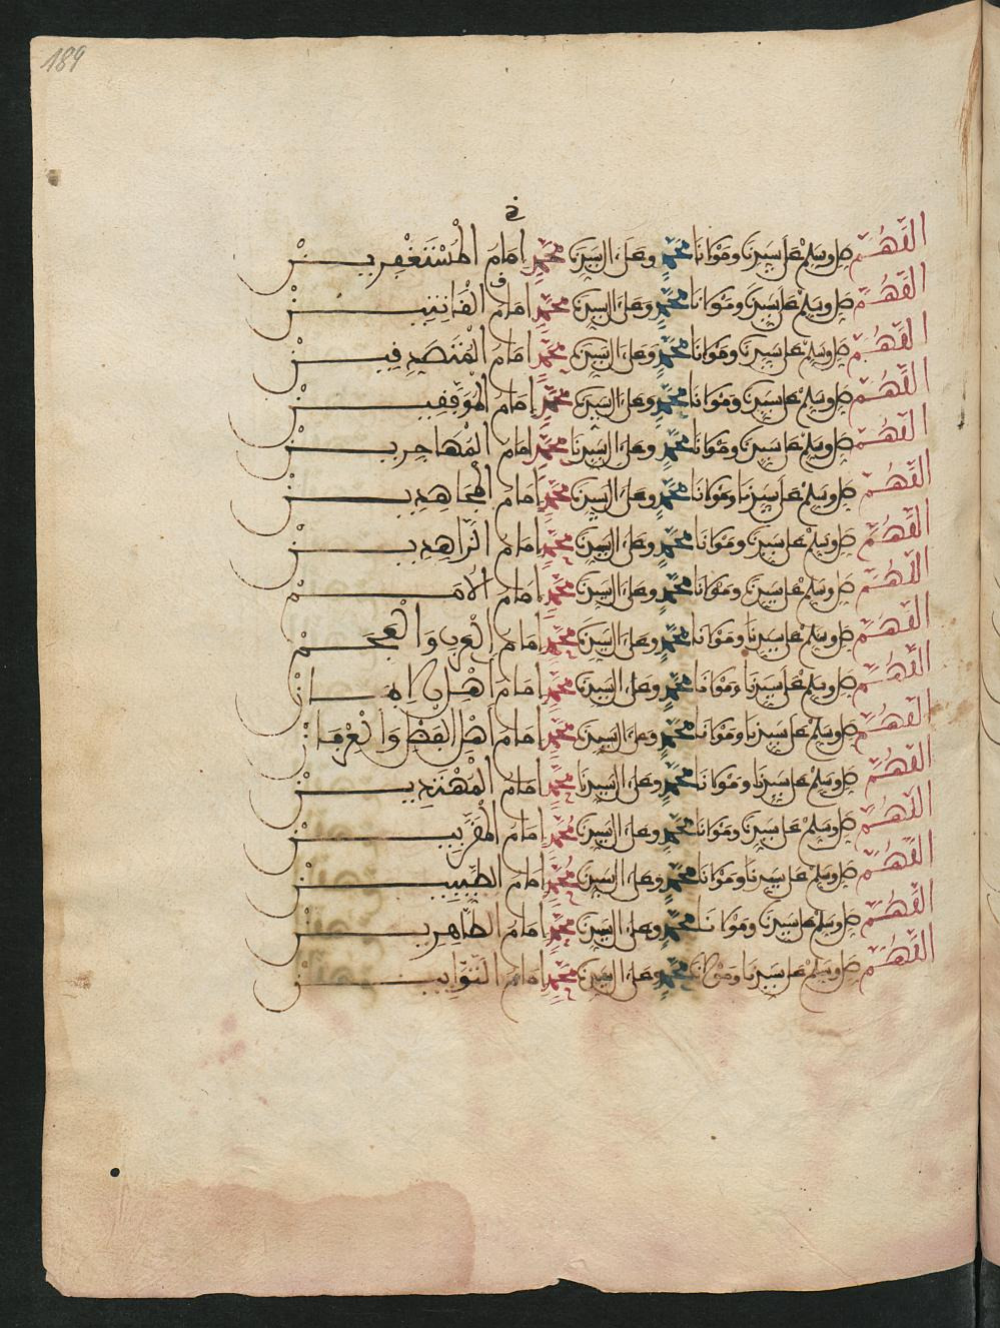 189
اللَّهُمَّ صل وسلم على سيدنا ومولانا محمد وعلى ال سيدنا محمد امام المستغفرين
اللَّهُمَّ صل وسلم على سيدنا ومولانا محمد وعلى ال سيدنا محمد امام القانتين
اللَّهُمَّ صل وسلم على سيدنا ومولانا محمد وعلى ال سيدنا محمد امام المتصدفين
اللَّهُمَّ صل وسلم على سيدنا ومولانا محمد وعلى ال سيدنا محمد امام الموفقين
اللَّهُمَّ صل وسلم على سيدنا ومولانا محمد وعلى ال سيدنا محمد امام المهاجرين
اللَّهُمَّ صل وسلم على سيدنا ومولانا محمد وعلى ال سيدنا محمد امام المجاهدين
اللَّهُمَّ صل وسلم على سيدنا ومولانا محمد وعلى ال سيدنا محمد امام الزاهدين
اللَّهُمَّ صل وسلم على سيدنا ومولانا محمد وعلى ال سيدنا محمد امام الامة
اللَّهُمَّ صل وسلم على سيدنا ومولانا محمد وعلى ال سيدنا محمد امام العرب والعجم
اللَّهُمَّ صل وسلم على سيدنا ومولانا محمد وعلى ال سيدنا محمد امام اهل الايمان
اللَّهُمَّ صل وسلم على سيدنا ومولانا محمد وعلى ال سيدنا محمد امام اهل الفضل والعرفان
اللَّهُمَّ صل وسلم على سيدنا ومولانا محمد وعلى ال سيدنا محمد امام المهتدين
اللَّهُمَّ صل وسلم على سيدنا ومولانا محمد وعلى ال سيدنا محمد امام المقربين
اللَّهُمَّ صل وسلم على سيدنا ومولانا محمد وعلى ال سيدنا محمد امام الطيبين
اللَّهُمَّ صل وسلم على سيدنا ومولانا محمد وعلى ال سيدنا محمد امام الطاهرين
اللَّهُمَّ صل وسلم على سيدنا ومولانا محمد وعلى ال سيدنا محمد امام التوابين